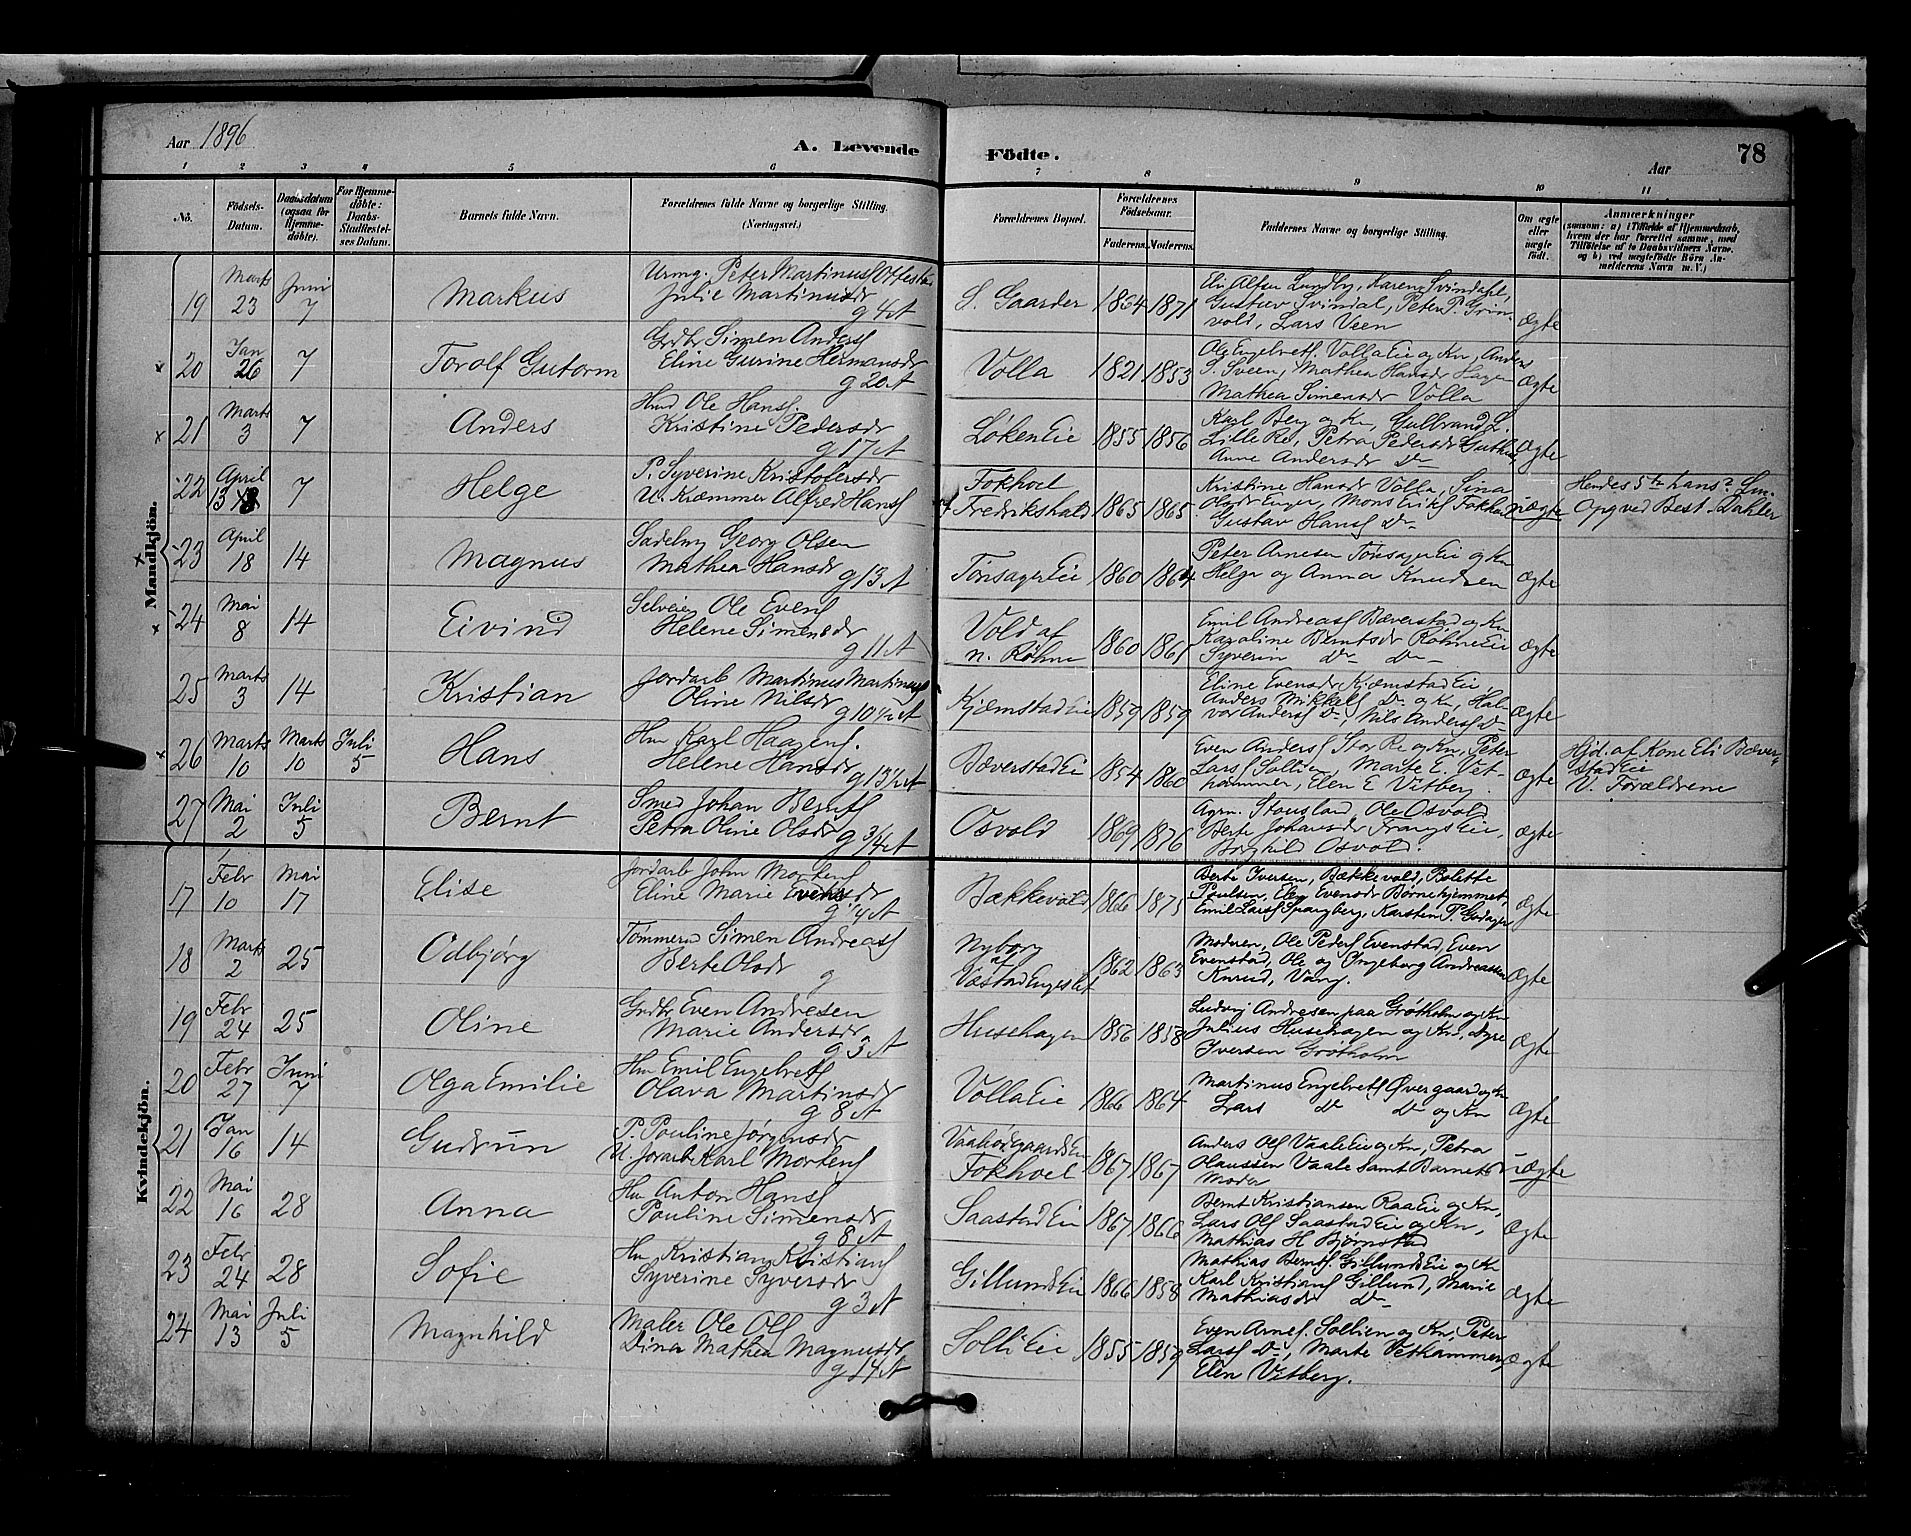 Aar 1896 A. Levende Födte. Aar 78
1 2 3 4 5 6 7 8 9 10 11
No. Födsels-Datum. Daabsdatum (ogsaa for Hjemme-döbte). For Hjemme-döbte: Daabs-Stadfæstel-ses Datum. Barnets fulde Navn. Forældrenes fulde Navne og borgerlige Stilling. (Næringsvei.) Forældrenes Bopæl. Forældrenes Födselsaar. Faderens. Moderens. Faddernes Navne og borgerlige Stilling. Om ægte eller uægte födt. Anmærkninger (saasom: a) i Tilfælde af Hjemmedaab, hvem der har forrettet samme, med Tilföielse af to Daabsvidners Navne, og b) ved uægtefödte Börn An-melderens Navn m. V.)
Mandkjön.
19 Marts 23 Juni 7 Markus Urmg. Peter Martinus
Julie Martinusdr g 4 A S. Gaarder 1864 1871 Karen Svindahl, Gustav Svindal, Peter P. Grin-vold, Lars Veen ægte
20 Jan 26 7 Torolf Gutorm Grdbr Simen Anders
Eline Gurine Hermansdr g 20 A Volla 1821 1853 Ole Engelbrets. Volla Eie og Kn, Anders S. Sveen, Mathea Hansdr Hagen
Mathea Simensdr Volla ægte
21 Marts 3 7 Anders Hmd Ole Hans.
Kristine Pedersdr g 17 A Løken Eie 1855 1856 Karl Berg og Kn, Gulbrand L. Lille Re, Petra Pedersdr
Anne Andersdr Do ægte
22 April 13 7 Helge P. Syverine Kristofersdr
U. Kræmmer Alfred Hans Fokhol
Fredrikshald 1865 1865 Kristine Hansdr Volla, Sina Olsdr Enger, Mons Eriks Fokhol
Gustav Hans Do uægte Hendes 5te hans 2.
Opg ved Best. Dahler
23 April 18 14 Magnus Sadelmg Georg Olsen
Mathea Hansdr g 13 A Tønsager Eie 1860 1864 Peter Arnesen Tønsager Eie og Kn
Helga og Anna Knudsen ægte
24 Mai 8 14 Eivind Selveier Ole Evens
Helene Simensdr g 11 A Vold af
n. Røhne 1860 1861 Emil Andreas Bæverstad og Kn
Karoline Berntsdr Røhne Eie
Syverin Do Do ægte
25 Marts 3 14 Kristian Jordarb Martinus Martinus
Oline Nilsdr g 10 1/2 A Kjemstad Eie 1859 1859 Eline Evensdr Kjemstad Eie,
Anders Mikkels Do og Kn, Hal-
vor Anders Do, Nils Anders Do ægte
26 Marts 10 Marts 10 Juli 5 Hans Hm Karl Haagens.
Helene Hansdr g 13 1/2 A Bæverstad Eie 1854 1860 Even Anders Stor Re og Kn, Peter
Lars Sollien, Marte E. Vet-
hammer, Elen E Vitberg ægte Hjd. af Kone Eli Bæver-
stad Eie
V. Forældrene
27 Mai 2 Juli 5 Bernt Smed Johan Bernts
Petra Oline Olsdr g 3/4 A Osvold 1869 1876 Agrn. Ole Osvold
Berte Johansdr Frangs Eie,
Borghild Osvold. ægte
Kvindekjön.
17 Febr 10 Mai 17 Elise Jordarb John Mortens
Eline Marie Evensdr g 1/4 A Bækkevold 1866 1875 Berte Iversen, Bækkevold, Bolette
Poulsen, Eley Evensdr Børnehjemmet
Emil Lars Spangberg, Karsten P. ægte
18 Marts 2 25 Odbjørg Tømmerm Simen Andreas
Berte Olsdr g Nyborg
af
Væstad Engeslet 1862 1863 Moderen, Ole Peders Evenstad, Even
Evenstad, Ole og Ingeborg Andreassen
Knud, Vang. ægte
19 Febr 24 25 Oline Grdbr Even Andresen
Marie Andersdr g 3 A Husehagen 1856 1858 Ludvig Andresen paa Grøtholm og Kn
Julius Husehagen og Kn,
Iversen Grøtholm ægte
20 Febr 27 Juni 7 Olga Emilie Hm Emil Engelbrets
Olava Martinsdr g 8 A Volla Eie 1866 1864 Martinus Engelbrets Øvergaard og Kn
Lars Do Do og Kn ægte
21 Jan 16 14 Gudrun P. Pouline Jørgensdr
U. Jorarb Karl Mortens
Fokhol 1867 1867 Anders Ols Vaale Eie og Kn, Petra
Olaussen Vaale samt Barnets
Moder uægte
22 Mai 16 28 Anna Hm Anton Hans
Pouline Simensdr g 8 A Saastad Eie 1867 1866 Bernt Kristiansen Raa Eie og Kn,
Lars Ols Saastad Eie og Kn,
Mathias H Bjørnstad ægte
23 Febr 24 28 Sofie Hm Kristian Kristians
Syverine Syversdr g 3 A Gillunds Eie 1866 1858 Mathias Bernts. Gillunds Eie og Kn
Karl Kristians Gillund, Marie
Mathiasdr Do ægte
24 Mai 13 Juli 5 Magnhild Maler Ole Ols
Dina Mathea Magnusdr g 14 A Solli Eie 1855 1859 Even Arnes. Sollien og Kn, Peter
Lars Do, Marte Vethammer,
Elen Vitberg. ægte